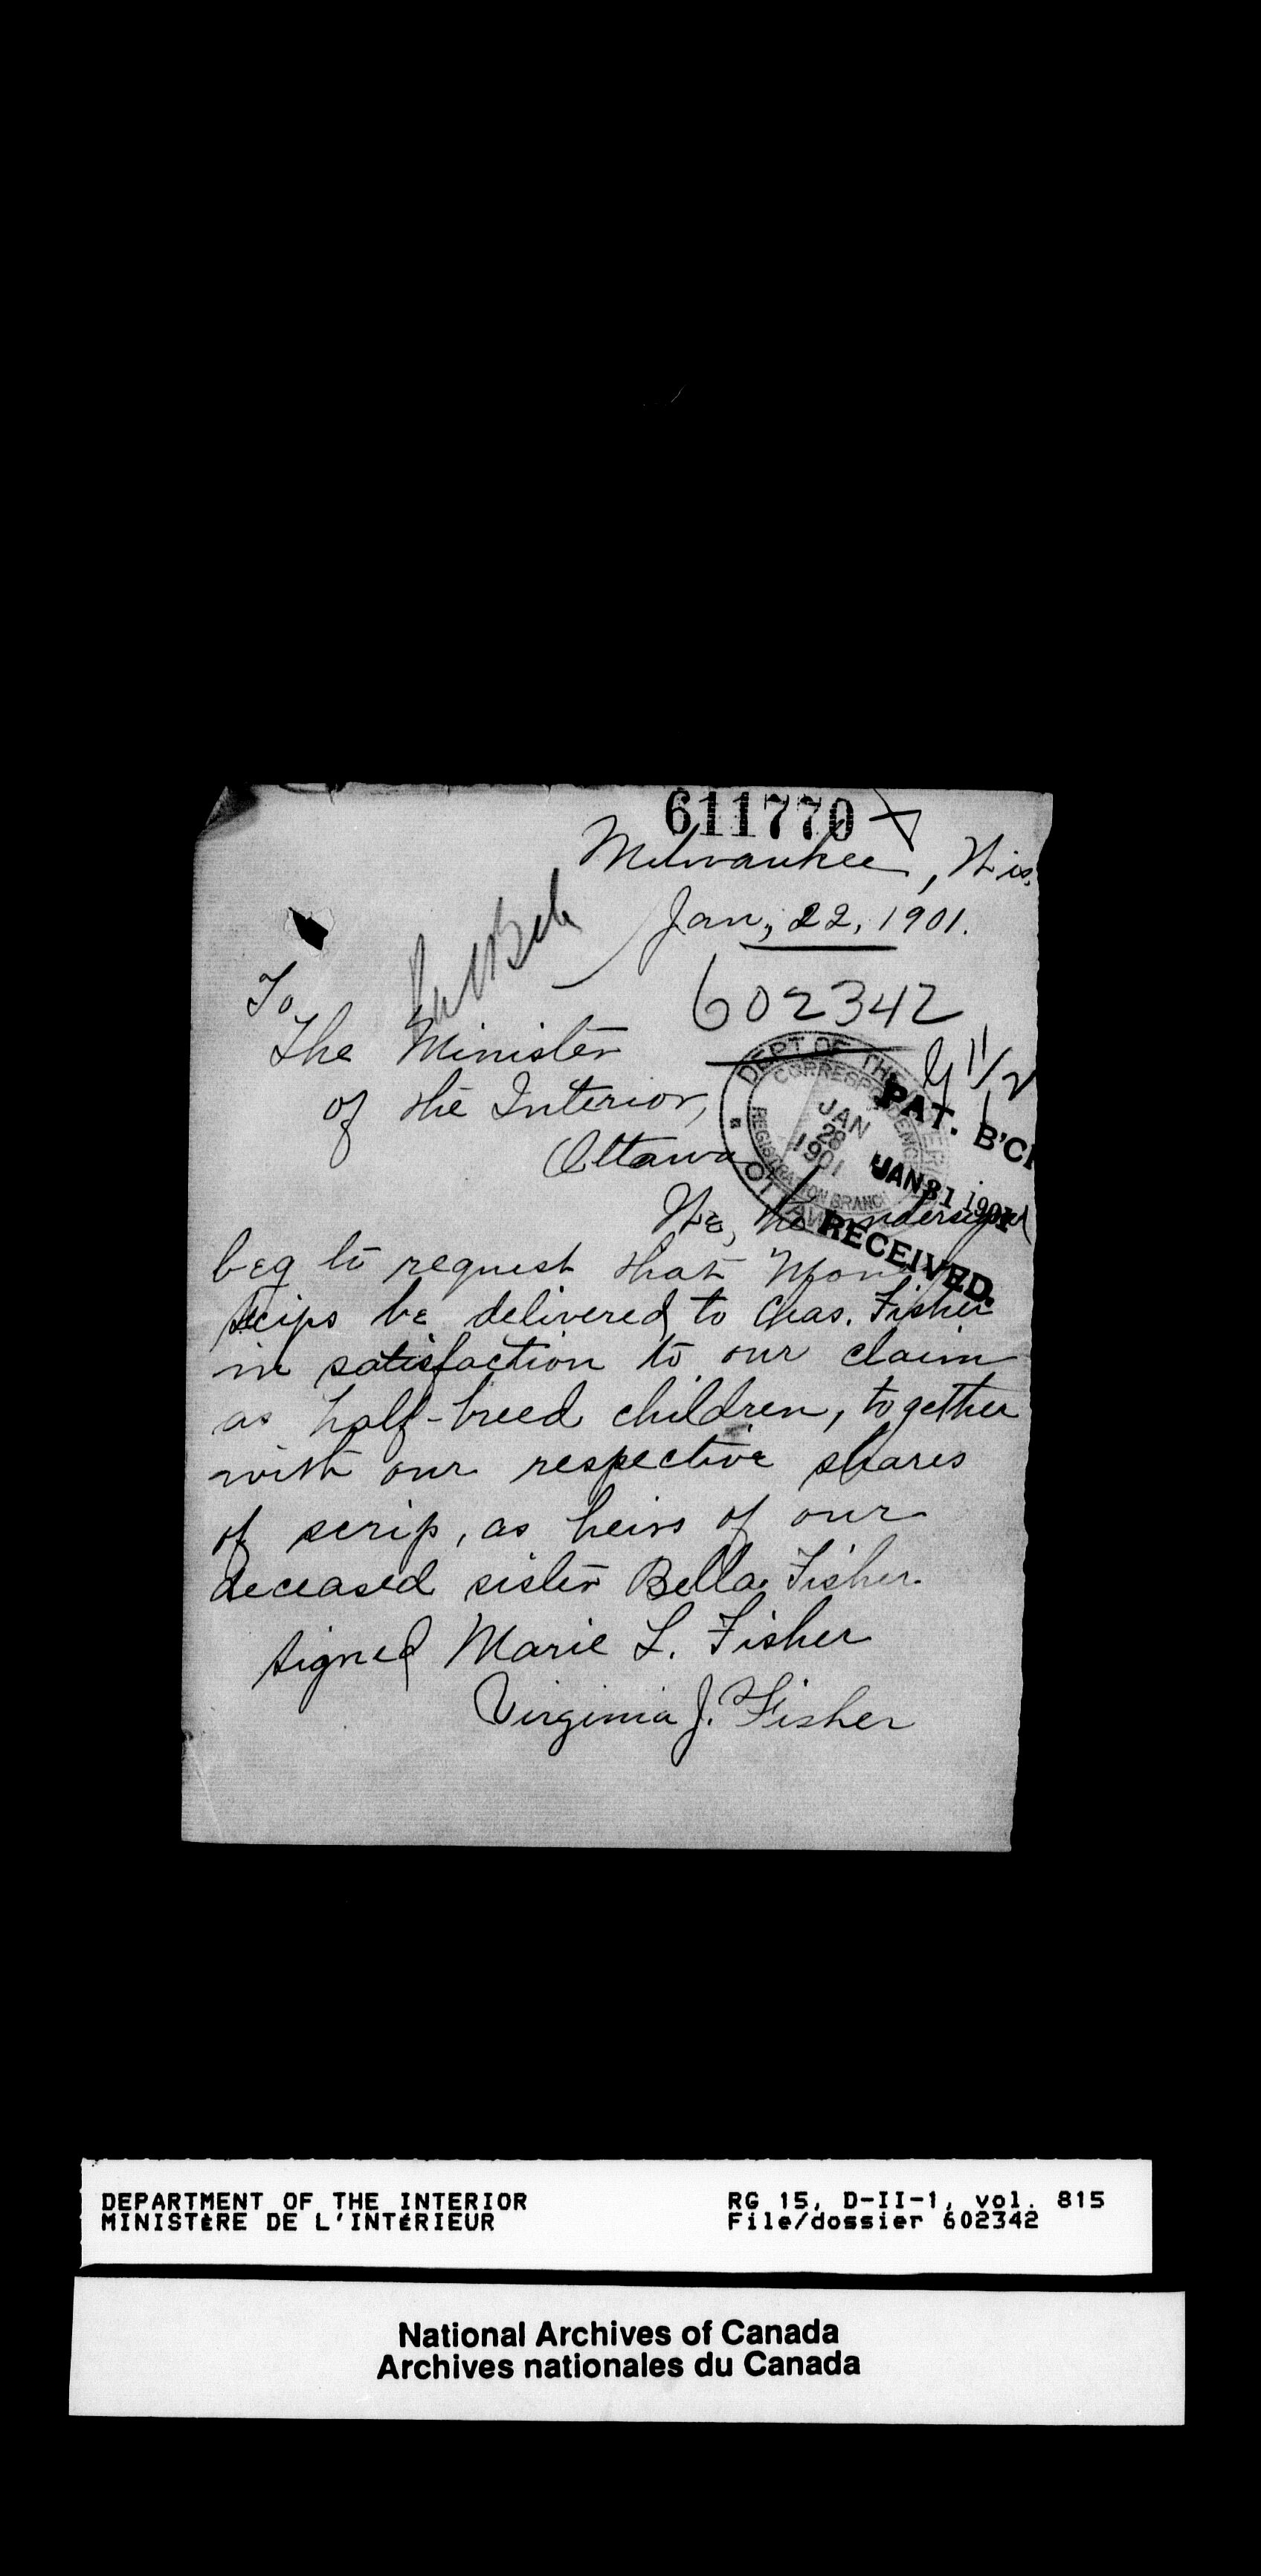 611770
Milwaukee, Wis.
Jan, 22, 1901.
To
602342
The Minister
of the Interior,
Ottawa
DEPT OF THE INTERIOR
CORRESPONDENCE
REGISTRATION BRANCH
OTTAWA
JAN
28
1901
PAT. B'CH
JAN 31 1901
RECEIVED.
We, the undersigned
beg to request that Money
scips be delivered to Chas. Fisher
in satisfaction to our claim
as half-breed children, together
with our respective shares
of scrip, as heirs of our
deceased sister Bella Fisher.
signed Marie L. Fisher
Virginia J. Fisher
DEPARTMENT OF THE INTERIOR
MINISTÈRE DE L'INTÉRIEUR
RG 15, D-II-1, vol. 815
File/dossier 602342
National Archives of Canada
Archives nationales du Canada